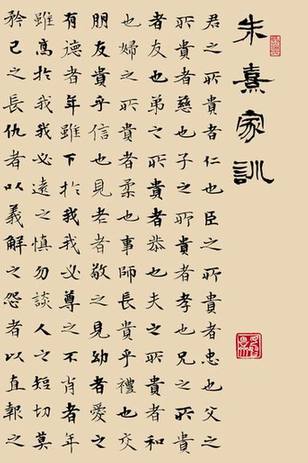 朱熹家訓
君之所貴者仁也臣之所貴者忠也父之
所貴者慈也子之所貴者孝也兄之所貴
者友也弟之所貴者恭也夫之所貴者和
也婦之所貴者柔也事師長貴乎禮也交
朋友貴乎信也見老者敬之見幼者愛之
有德者年雖下於我我必尊之不肖者年
雖高於我我必遠之慎勿談人之短切莫
矜己之長仇者以義解之怨者以直報之